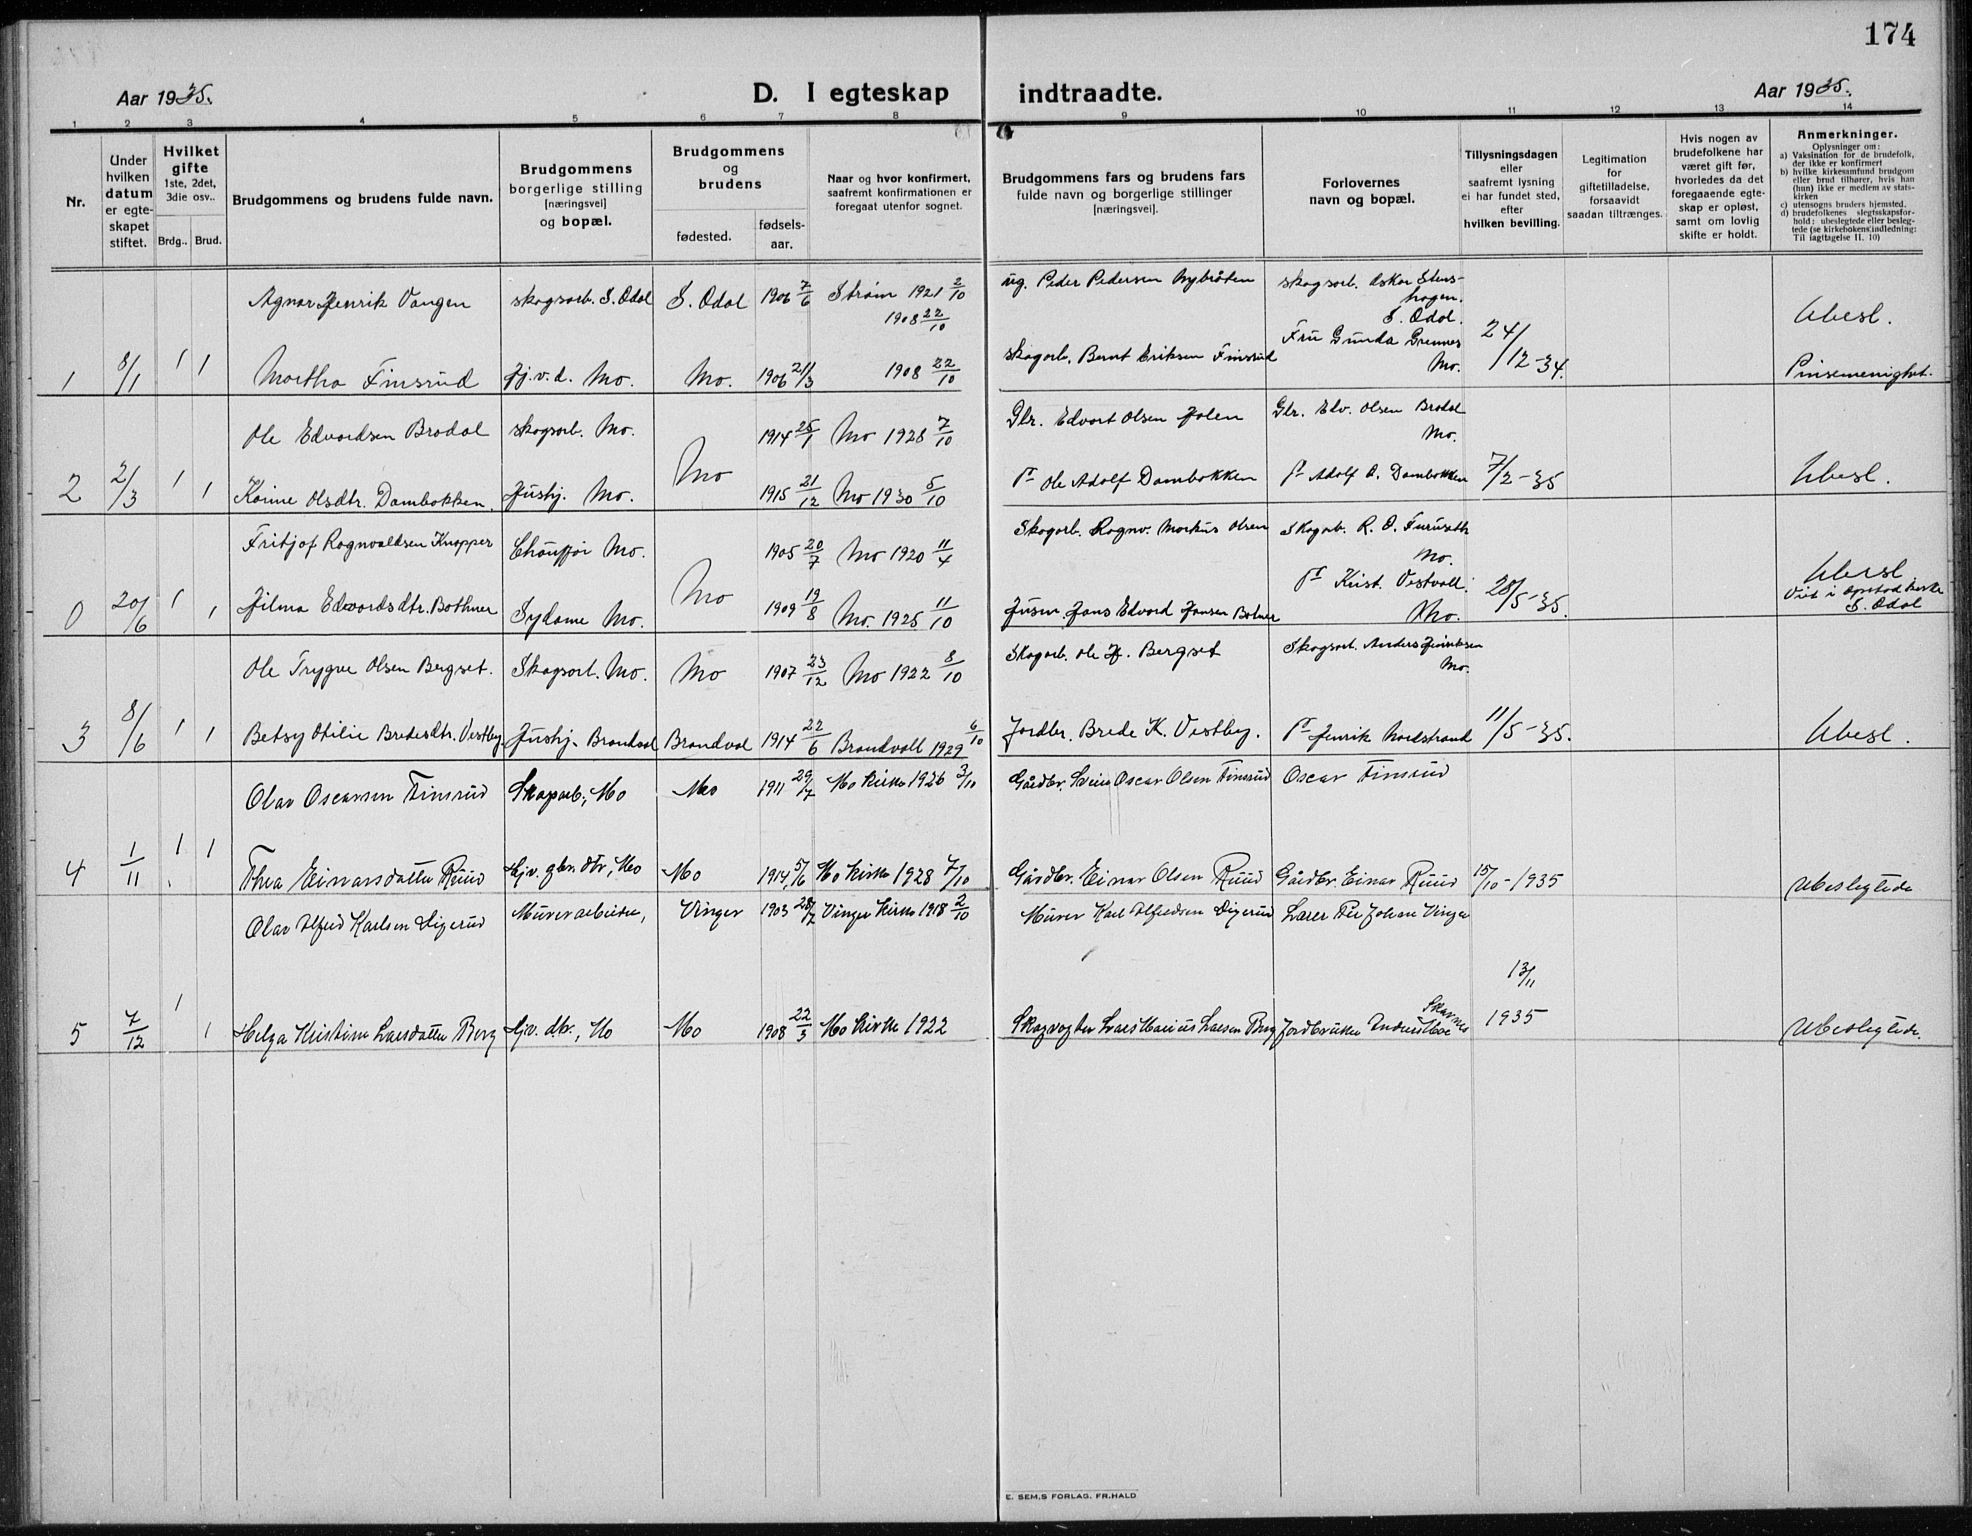 174
Aar 1935.
D. I egteskap indtraadte.
Aar 1935.
1 2 3 4 5 6 7 8 9 10 11 12 13 14
Nr.
Under hvilken datum er egteskapet stiftet.
Hvilket gifte 1ste, 2det, 3die osv..
Brdg.. Brud.
Brudgommens og brudens fulde navn.
Brudgommens borgerlige stilling [næringsvei] og bopæl.
Brudgommens og brudens
fødested.
fødselsaar.
Naar og hvor konfirmert, saafremt konfirmationen er foregaat utenfor sognet.
Brudgommens fars og brudens fars fulde navn og borgerlige stillinger [næringsvei].
Forlovernes navn og bopæl.
Tillysningsdagen eller saafremt lysning ei har fundet sted, efter hvilken bevilling.
Legitimation for giftetilladelse, forsaavidt saadan tiltrænges.
Hvis nogen av brudefolkene har været gift før, hvorledes da det foregaaende egteskap er opløst, samt om lovlig skifte er holdt.
Anmerkninger.
Oplysninger om:
a) Vaksination for de brudefolk, der ikke er konfirmert
b) hvilke kirkesamfund brudgom eller brud tilhører, hvis han (hun) ikke er medlem av statskirken
c) utensogns bruders hjemsted.
d) brudefolkenes slegtsskapsforhold; ubeslegtede eller beslegtede (se kirkebokens indledning: Til iagttagelse II. 10)
Agnar Henrik Vangen skogsarb. S. Odal S. Odal 1906 7/6 Strøm 1921 2/10
1908 22/10
ug. Peder Pedersen Nybråten skogsarb. Oskar Stenshagen. S. Odal.
Ubesl.
1 8/1 1 1 Martha Finsrud Hj.v.d. Mo. Mo. 1906 21/3 1908 22/10 skogarb. Bernt Eriksen Finsrud Fru Gunda Grennes Mo. 24/12-34. Pinsemenighet.
Ole Edvardsen Brodal skogsarb. Mo. Mo 1914 25/1 Mo 1928 7/10 Gbr. Edvart Olsen Holen Gbr. Edv. Olsen Brodal Mo.
2 2/3 1 1 Karine Olsdtr. Dambakken. Hushj. Mo. 1915 21/12 Mo 1930 5/10 Ole Adolf Dambakken Adolf O. Dambakken 7/2-35 Ubesl.
Fritjof Ragnvaldsen Knapper Chauffør Mo. Mo 1905 20/7 Mo 1920 11/4 Skogarb. Ragnv. Markus Olsen Skogarb. R. O. Furuseth Mo.
0 20/6 1 1 Hilma Edvardsdtr. Bothner Sydame Mo. 1909 19/8 Mo. 1925 11/10 Husm. Hans Edvard Hansen Botner Krist. Vestvoll. Mo. 28/5-35. Ubesl Viet i Opstad kirke S. Odal
Ole Trygve Olsen Bergset. Skogsarb. Mo. Mo 1907 23/12 Mo 1922 8/10 Skogarb. Ole H. Bergset Skogsarb. Anders Henriksen Mo.
3 8/6 1 1 Betsy Otilie Bredesdtr. Vestby. Hushj. Brandval Brandval 1914 22/6 Brandvall 1929 6/10 Jordbr. Brede K. Vestby. Henrik Nordstrand 11/5-35. Ubesl.
Olav Oscarsen Finsrud Skogarb., Mo Mo 1911 29/7 Mo Kirke 1926 3/10 Gårdbr. Svein Oscar Olsen Finsrud Oscar Finsrud
4 1/11 1 1 Thea Einarsdatter Ruud Hjv. gbr. dtr, Mo Mo 1914 5/6 Mo Kirke 1928 7/10 Gårdbr. Einar Olsen Ruud Gårdbr. Einar Ruud 15/10-1935 Ubeslegtede
Olav Alfred Karlsen Digerud Murerarbeider, Vinger 1903 28/7 Vinger Kirke 1918 2/10 Murer Karl Alfredsen Digerud Lærer Per Johan Vinger
5 7/12 1 1 Helga Kristine Larsdatter Berg Hjv. dtr., Mo Mo 1908 22/3 Mo Kirke 1922 Skogvogter Lars Marius Larsen Berg Jordbruker Anders Moe Skarnes 13/11 1935 Ubeslegtede.
E. SEM,S FORLAG. FR.HALD